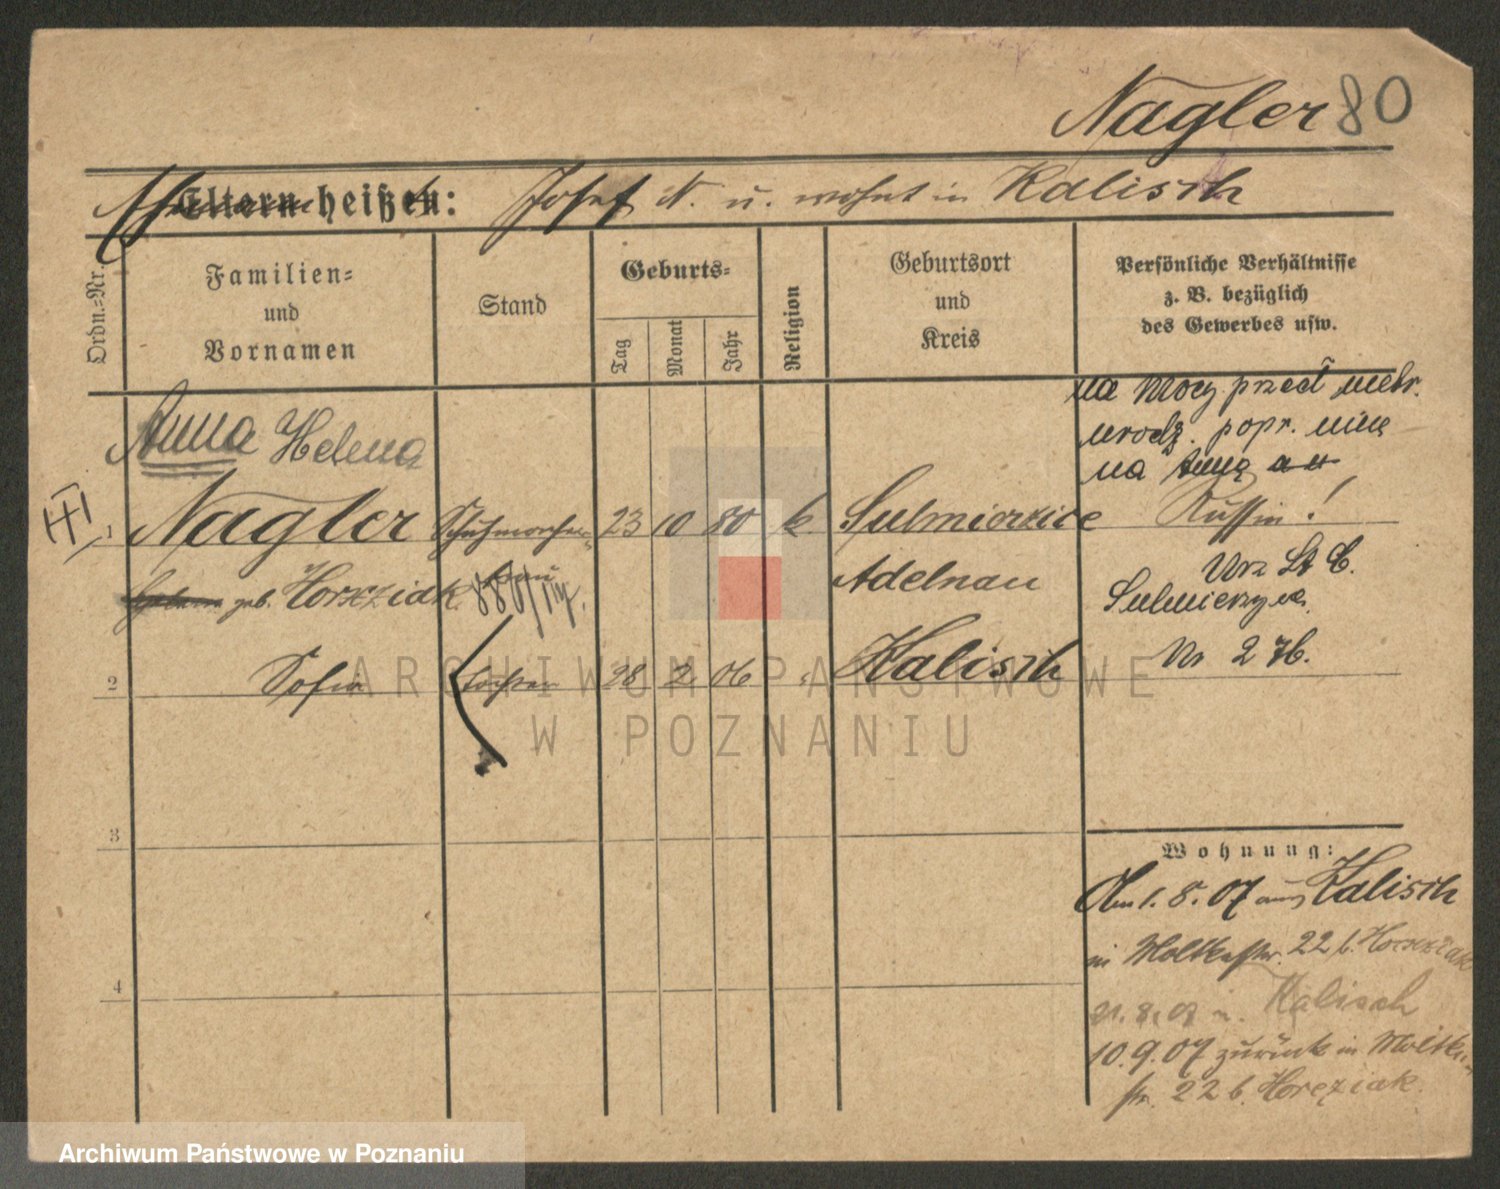 Nagler 80
Eltern heißen: Josef N. u. wohnt in Kalisch
Ordn.=Nr.
Familien=
und
Vornamen
Stand
Geburts=
Tag
Monat
Jahr
Religion
Geburtsort
und
Kreis
Persönliche Verhältnisse
z. B. bezüglich
des Gewerbes usw.
na mocy przedł metr.
urodz. popr. imię
na Annę
Anna Helena
1 Nagler 23 10 80 k. Sulmierzice Russin!
geb. Horszziak Adelnau
Urz St C.
Sulmierzyce
Nr 276.
2 Sofia 28 2 06 Kalisch
3
4
Wohnung:
Am 1. 8. 07 aus Kalisch
in Moltkestr. 22 b. Horszziak
21. 8. 07 n. Kalisch
10. 9. 07 zurück in Moltke
str. 22 b. Horeziak.
ARCHIWUM PAŃSTWOWE
W POZNANIU
Archiwum Państwowe w Poznaniu